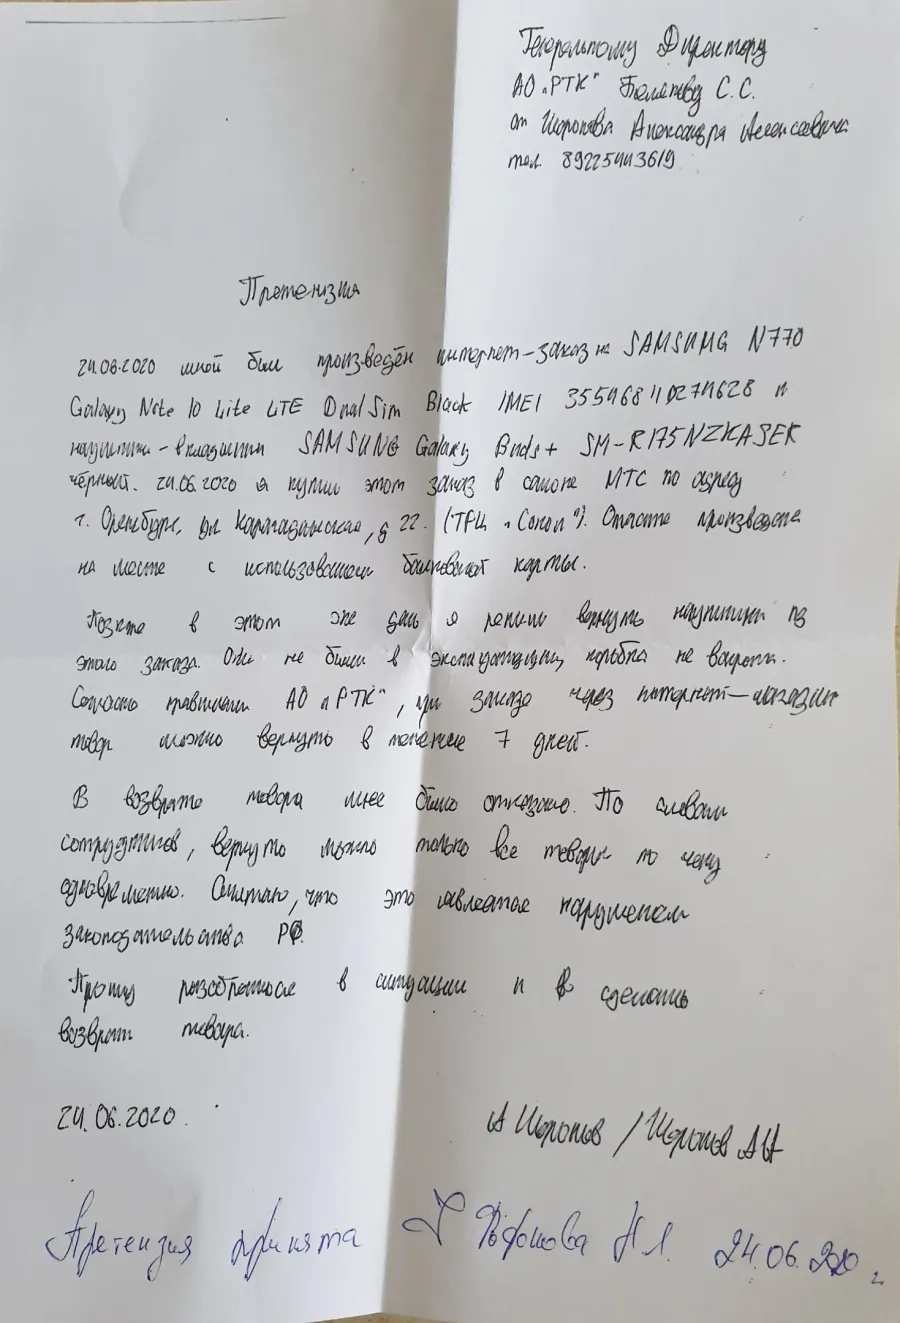 Генеральному Директору
АО "РТК" С.С.
от Широкова Александра Алексеевича
тел. 89225443619
Претензия
24.06.2020 мной был произведён интернет-заказ на SAMSUNG N770
Galaxy Note 10 Lite LTE Dual Sim Black IMEI и
наушники-вкладыши SAMSUNG Galaxy Buds+ SM-R175NZKASER
чёрный. 24.06.2020 я купил этот заказ в салоне МТС по адресу
г. Оренбург, ул Карагандинская, д 22. (ТРЦ "Сокол"). Оплата произведена
на месте с использованием банковской карты.
Позже в этот же день я решил вернуть наушники из
этого заказа. Они не были в эксплуатации, коробка не вскрыта.
Согласно правилам АО "РТК", при заказе через интернет-магазин
товар можно вернуть в течение 7 дней.
В возврате товара мне было отказано. По словам
сотрудников, вернуть можно только все товары по чеку
одновременно. Считаю, что это является нарушением
законодательства РФ.
Прошу разобраться в ситуации и сделать
возврат товара.
24.06.2020.
А Широков / Широков АА
Претензия принята Н Л. 24.06.2020 г.